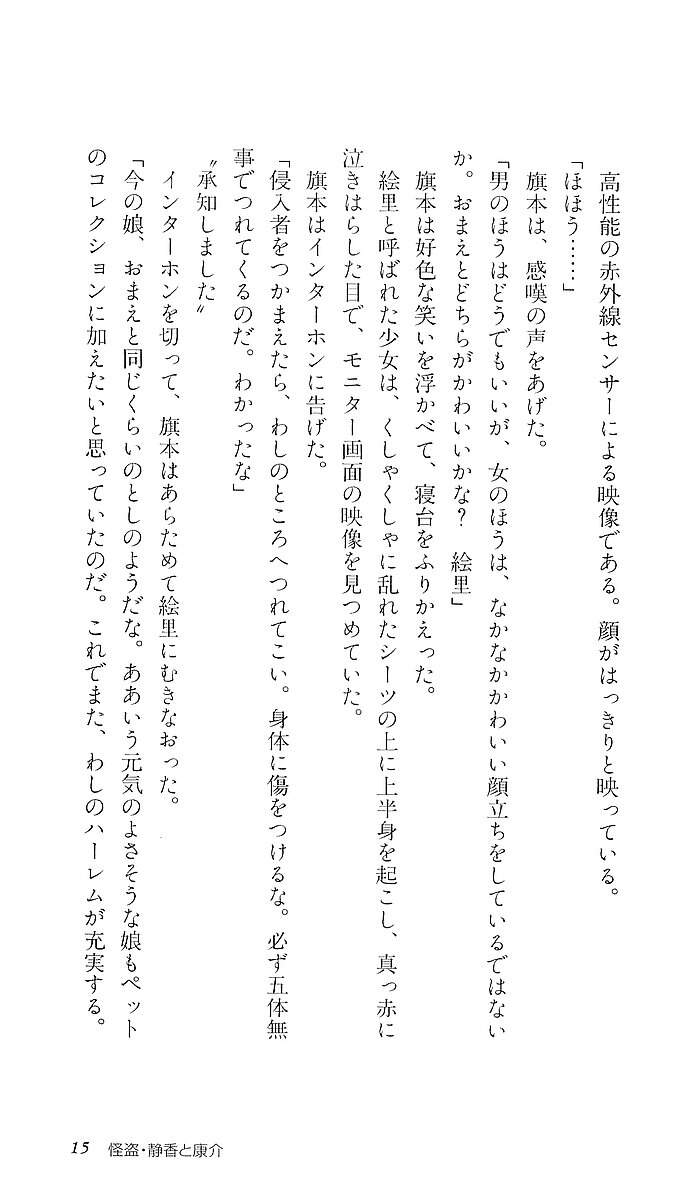 高性能の赤外線センサーによる映像である。顔がはっきりと映っている。
「ほほう……」
旗本は、感嘆の声をあげた。
「男のほうはどうでもいいが、女のほうは、なかなかかわいい顔立ちをしているではない
か。おまえとどちらがかわいいかな？　絵里」
旗本は好色な笑いを浮かべて、寝台をふりかえった。
絵里と呼ばれた少女は、くしゃくしゃに乱れたシーツの上に上半身を起こし、真っ赤に
泣きはらした目で、モニター画面の映像を見つめていた。
旗本はインターホンに告げた。
「侵入者をつかまえたら、わしのところへつれてこい。身体に傷をつけるな。必ず五体無
事でつれてくるのだ。わかったな」
〝承知しました〟
インターホンを切って、旗本はあらためて絵里にむきなおった。
「今の娘、おまえと同じくらいのとしのようだな。ああいう元気のよさそうな娘もペット
のコレクションに加えたいと思っていたのだ。これでまた、わしのハーレムが充実する。
15 怪盗・静香と康介